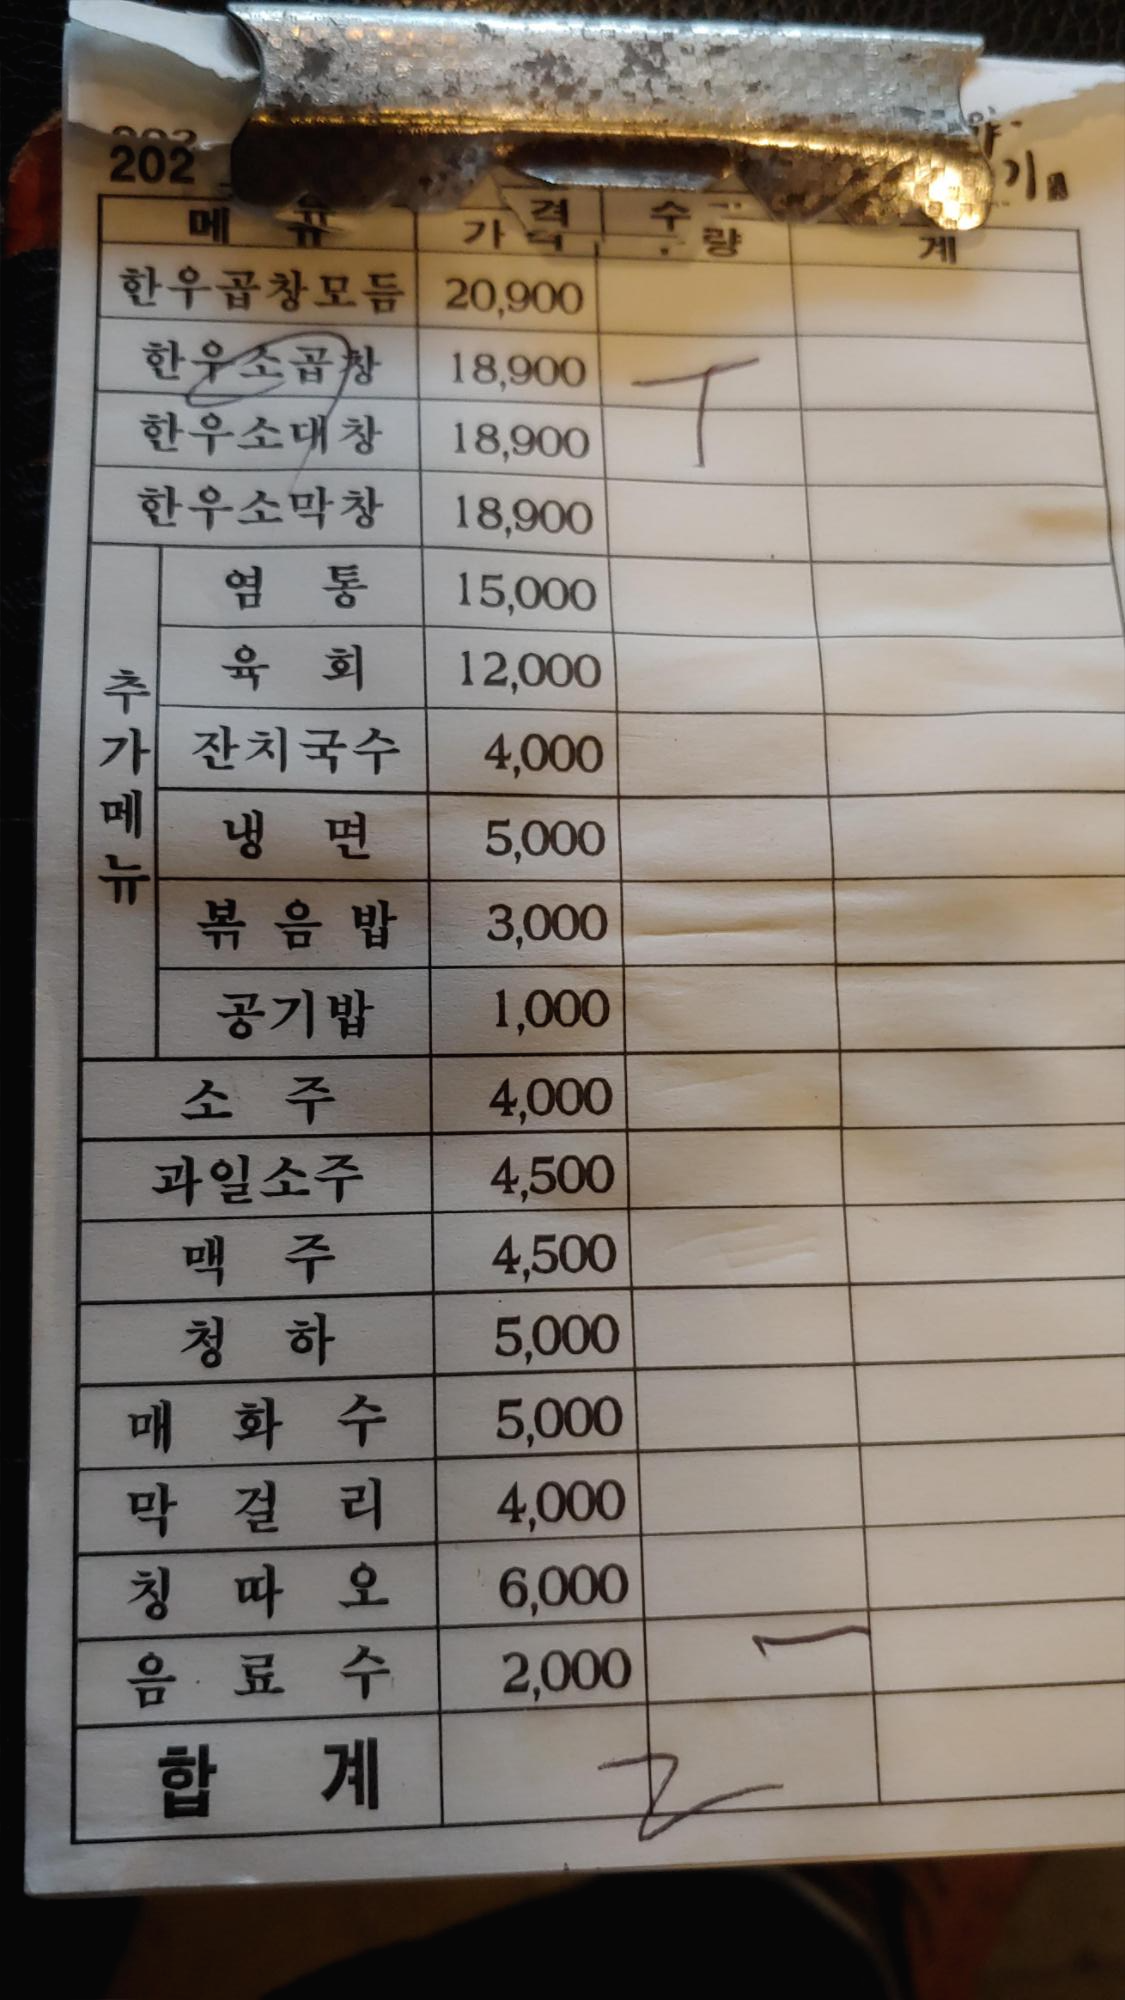 202
메 뉴 가 격 수 량 계
한우곱창모듬 20,900
한우소곱창 18,900 T
한우소대창 18,900
한우소막창 18,900
추가메뉴
염 통 15,000
육 회 12,000
잔치국수 4,000
냉 면 5,000
볶 음 밥 3,000
공기밥 1,000
소 주 4,000
과일소주 4,500
맥 주 4,500
청 하 5,000
매 화 수 5,000
막 걸 리 4,000
칭 따 오 6,000
음 료 수 2,000
합 계